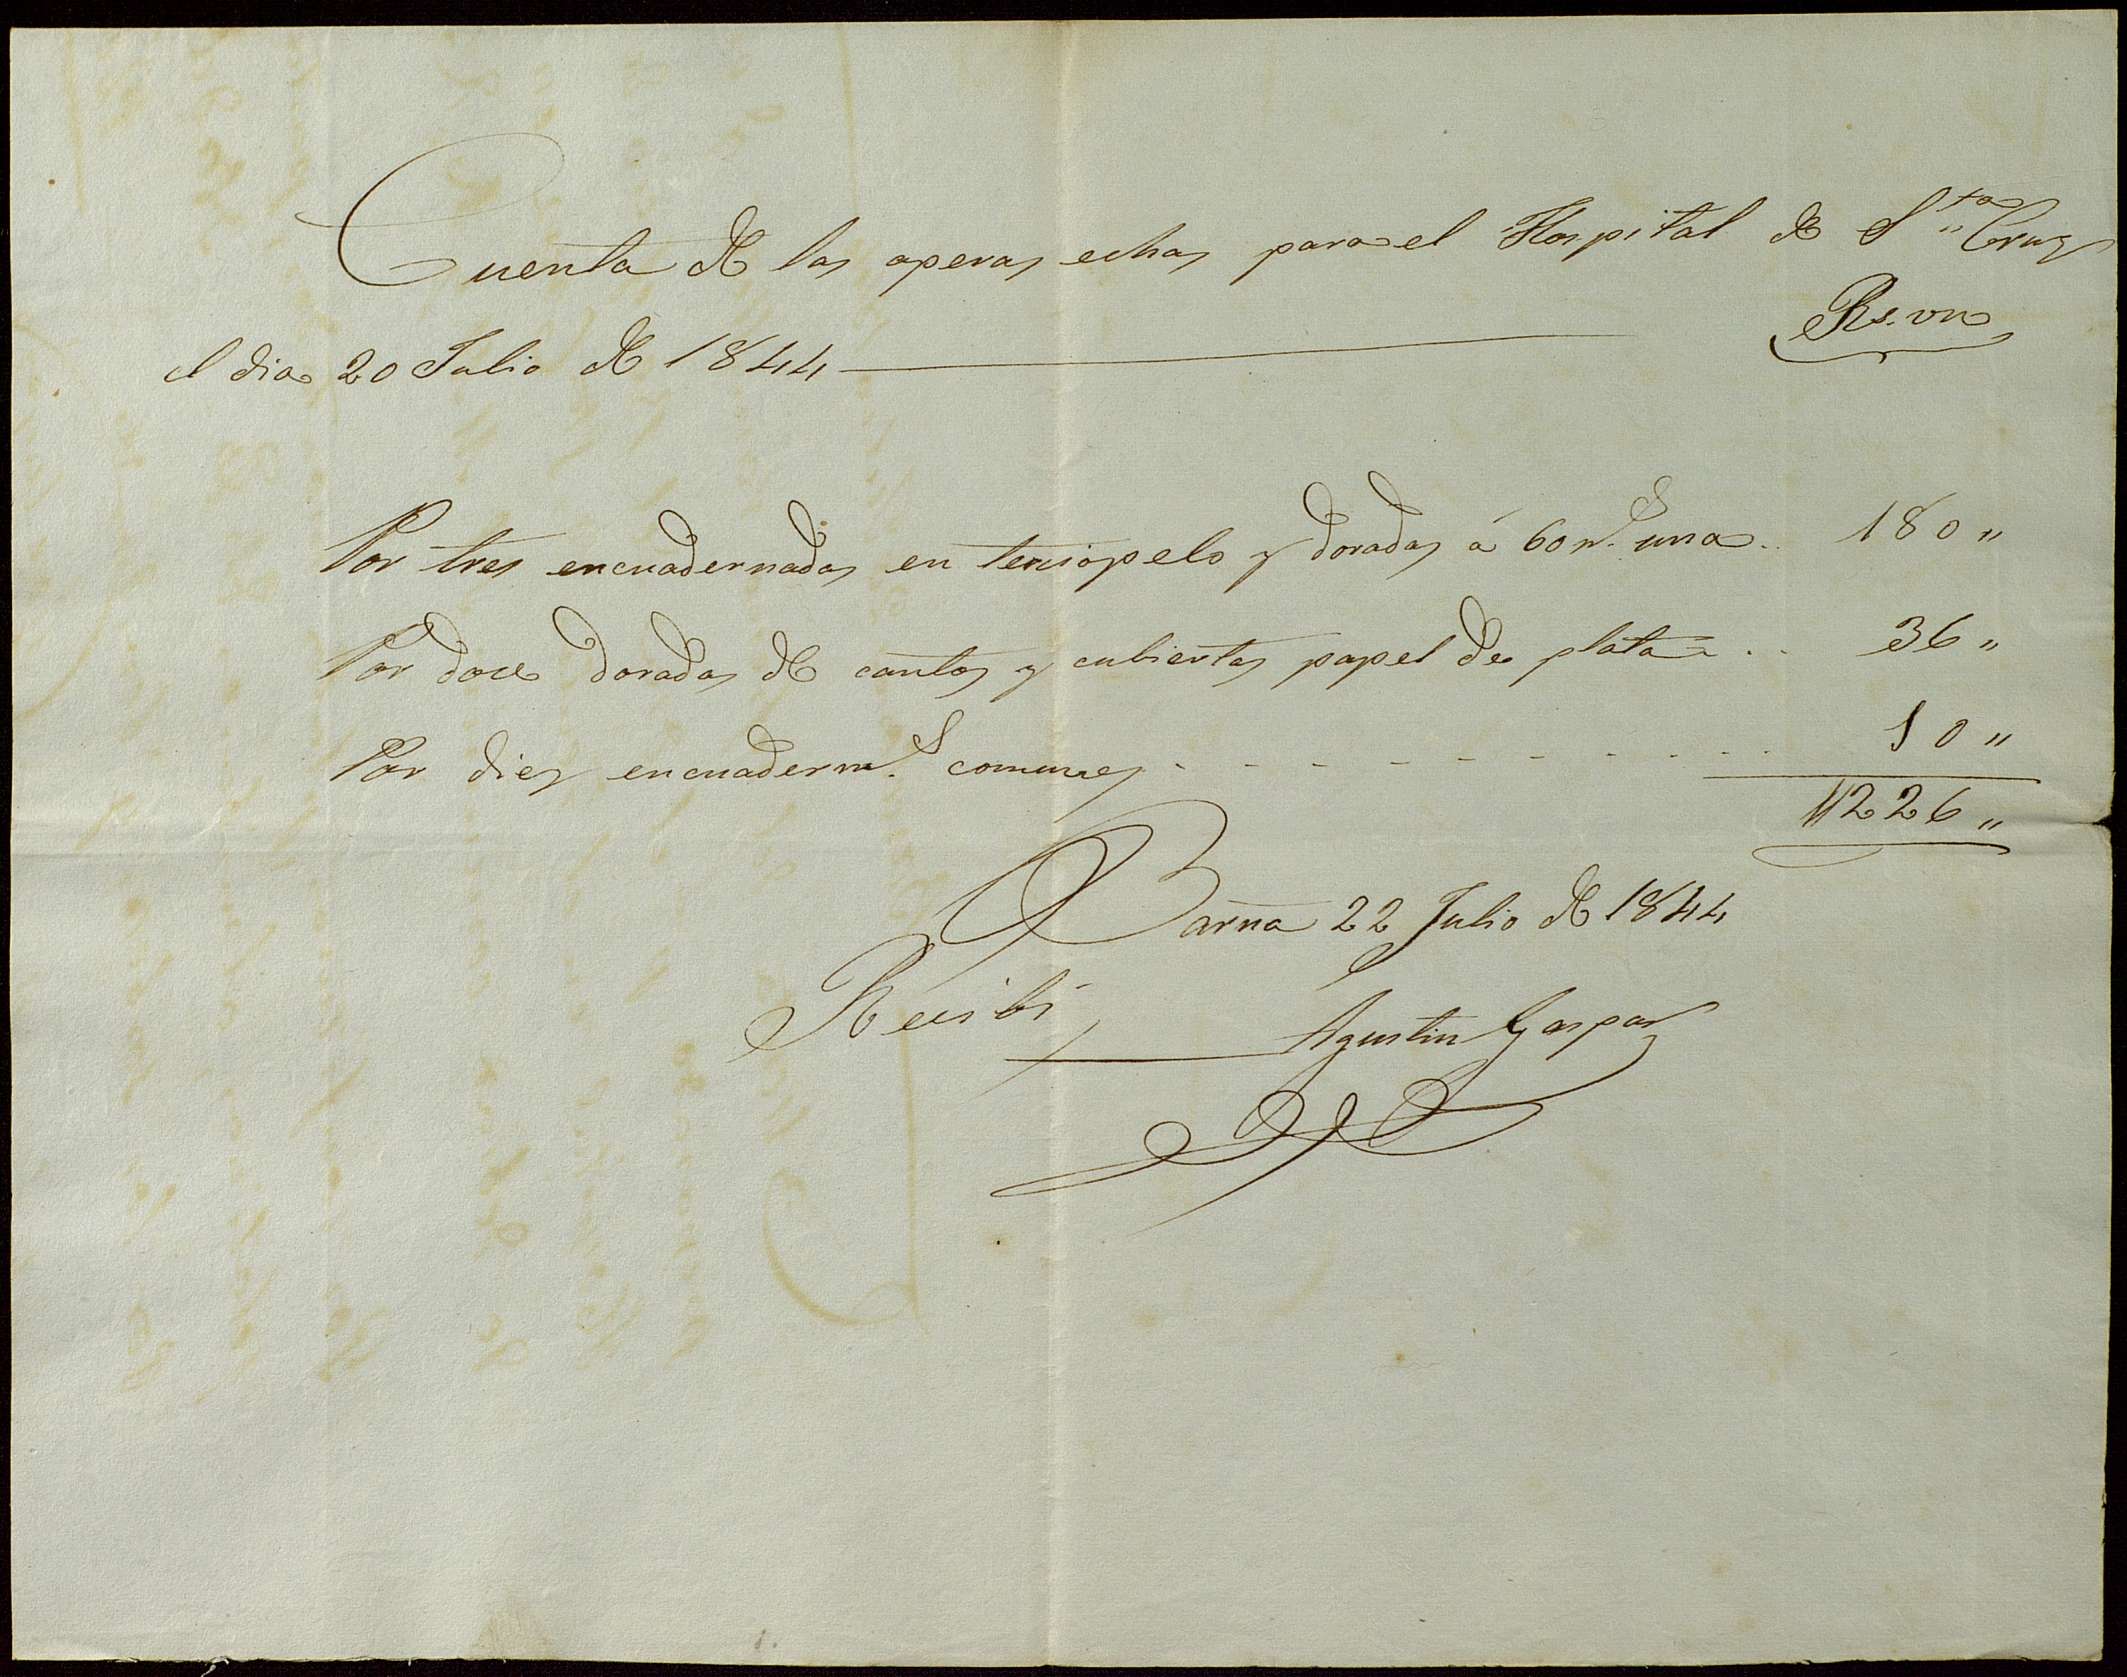 Cuenta de las operas echas para el Hospital de Sta Cruz
Rs. vn
el dia 20 Julio de 1844
Por tres encuadernadas en terciopelo y doradas á 60 rs. una .. 180 "
Por doce doradas de cantos y cubiertas papel de plata .. 36 "
Por diez encuadernas. comunes - - - - - - - - - 10 "
226 "
Barna 22 Julio de 1844
Recibi
Agustin Gaspar